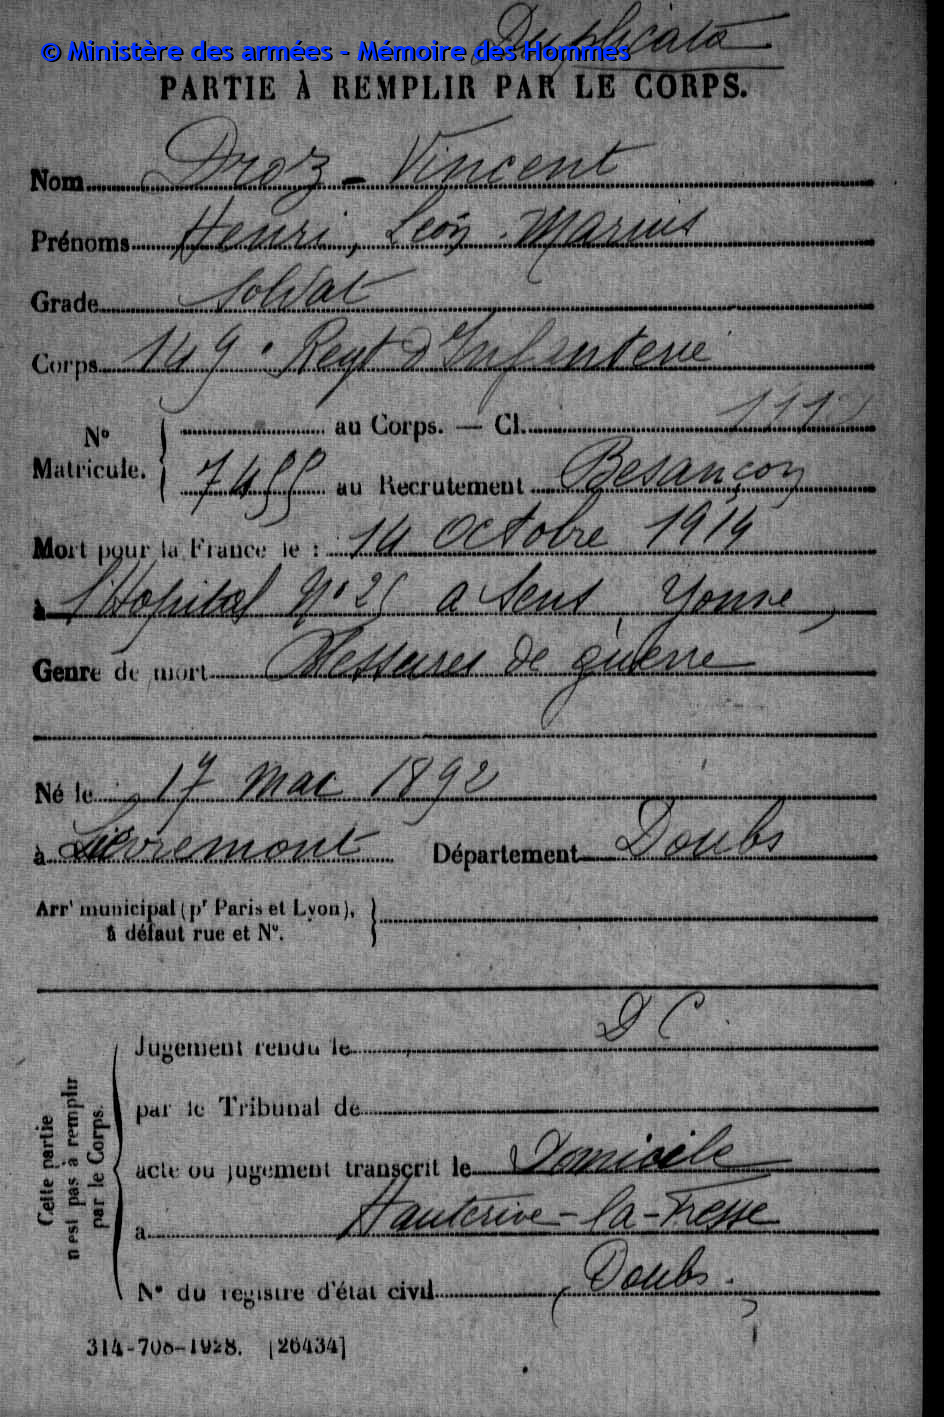 Duplicata
© Ministère des armées - Mémoire des Hommes
PARTIE À REMPLIR PAR LE CORPS.
Nom Droz - Vincent
Prénoms Henri, Léon Marius
Grade Soldat
Corps 149e Regt d'Infanterie
N° Matricule.
au Corps. — Cl. 1912
7455 au Recrutement Besançon
Mort pour la France le : 14 Octobre 1914
à l'Hopital N° 25 a Sens, Yonne,
Genre de mort Blessures de guerre
Né le 17 Mai 1892
à Lièvremont Département Doubs
Arrt municipal (pr Paris et Lyon),
à défaut rue et N°.
Cette partie
n'est pas à remplir
par le Corps.
Jugement rendu le D C
par le Tribunal de
acte ou jugement transcrit le Domicile
à Hauterive-la-Fresse
N° du registre d'état civil (Doubs.)
314-708-1928. [26434]